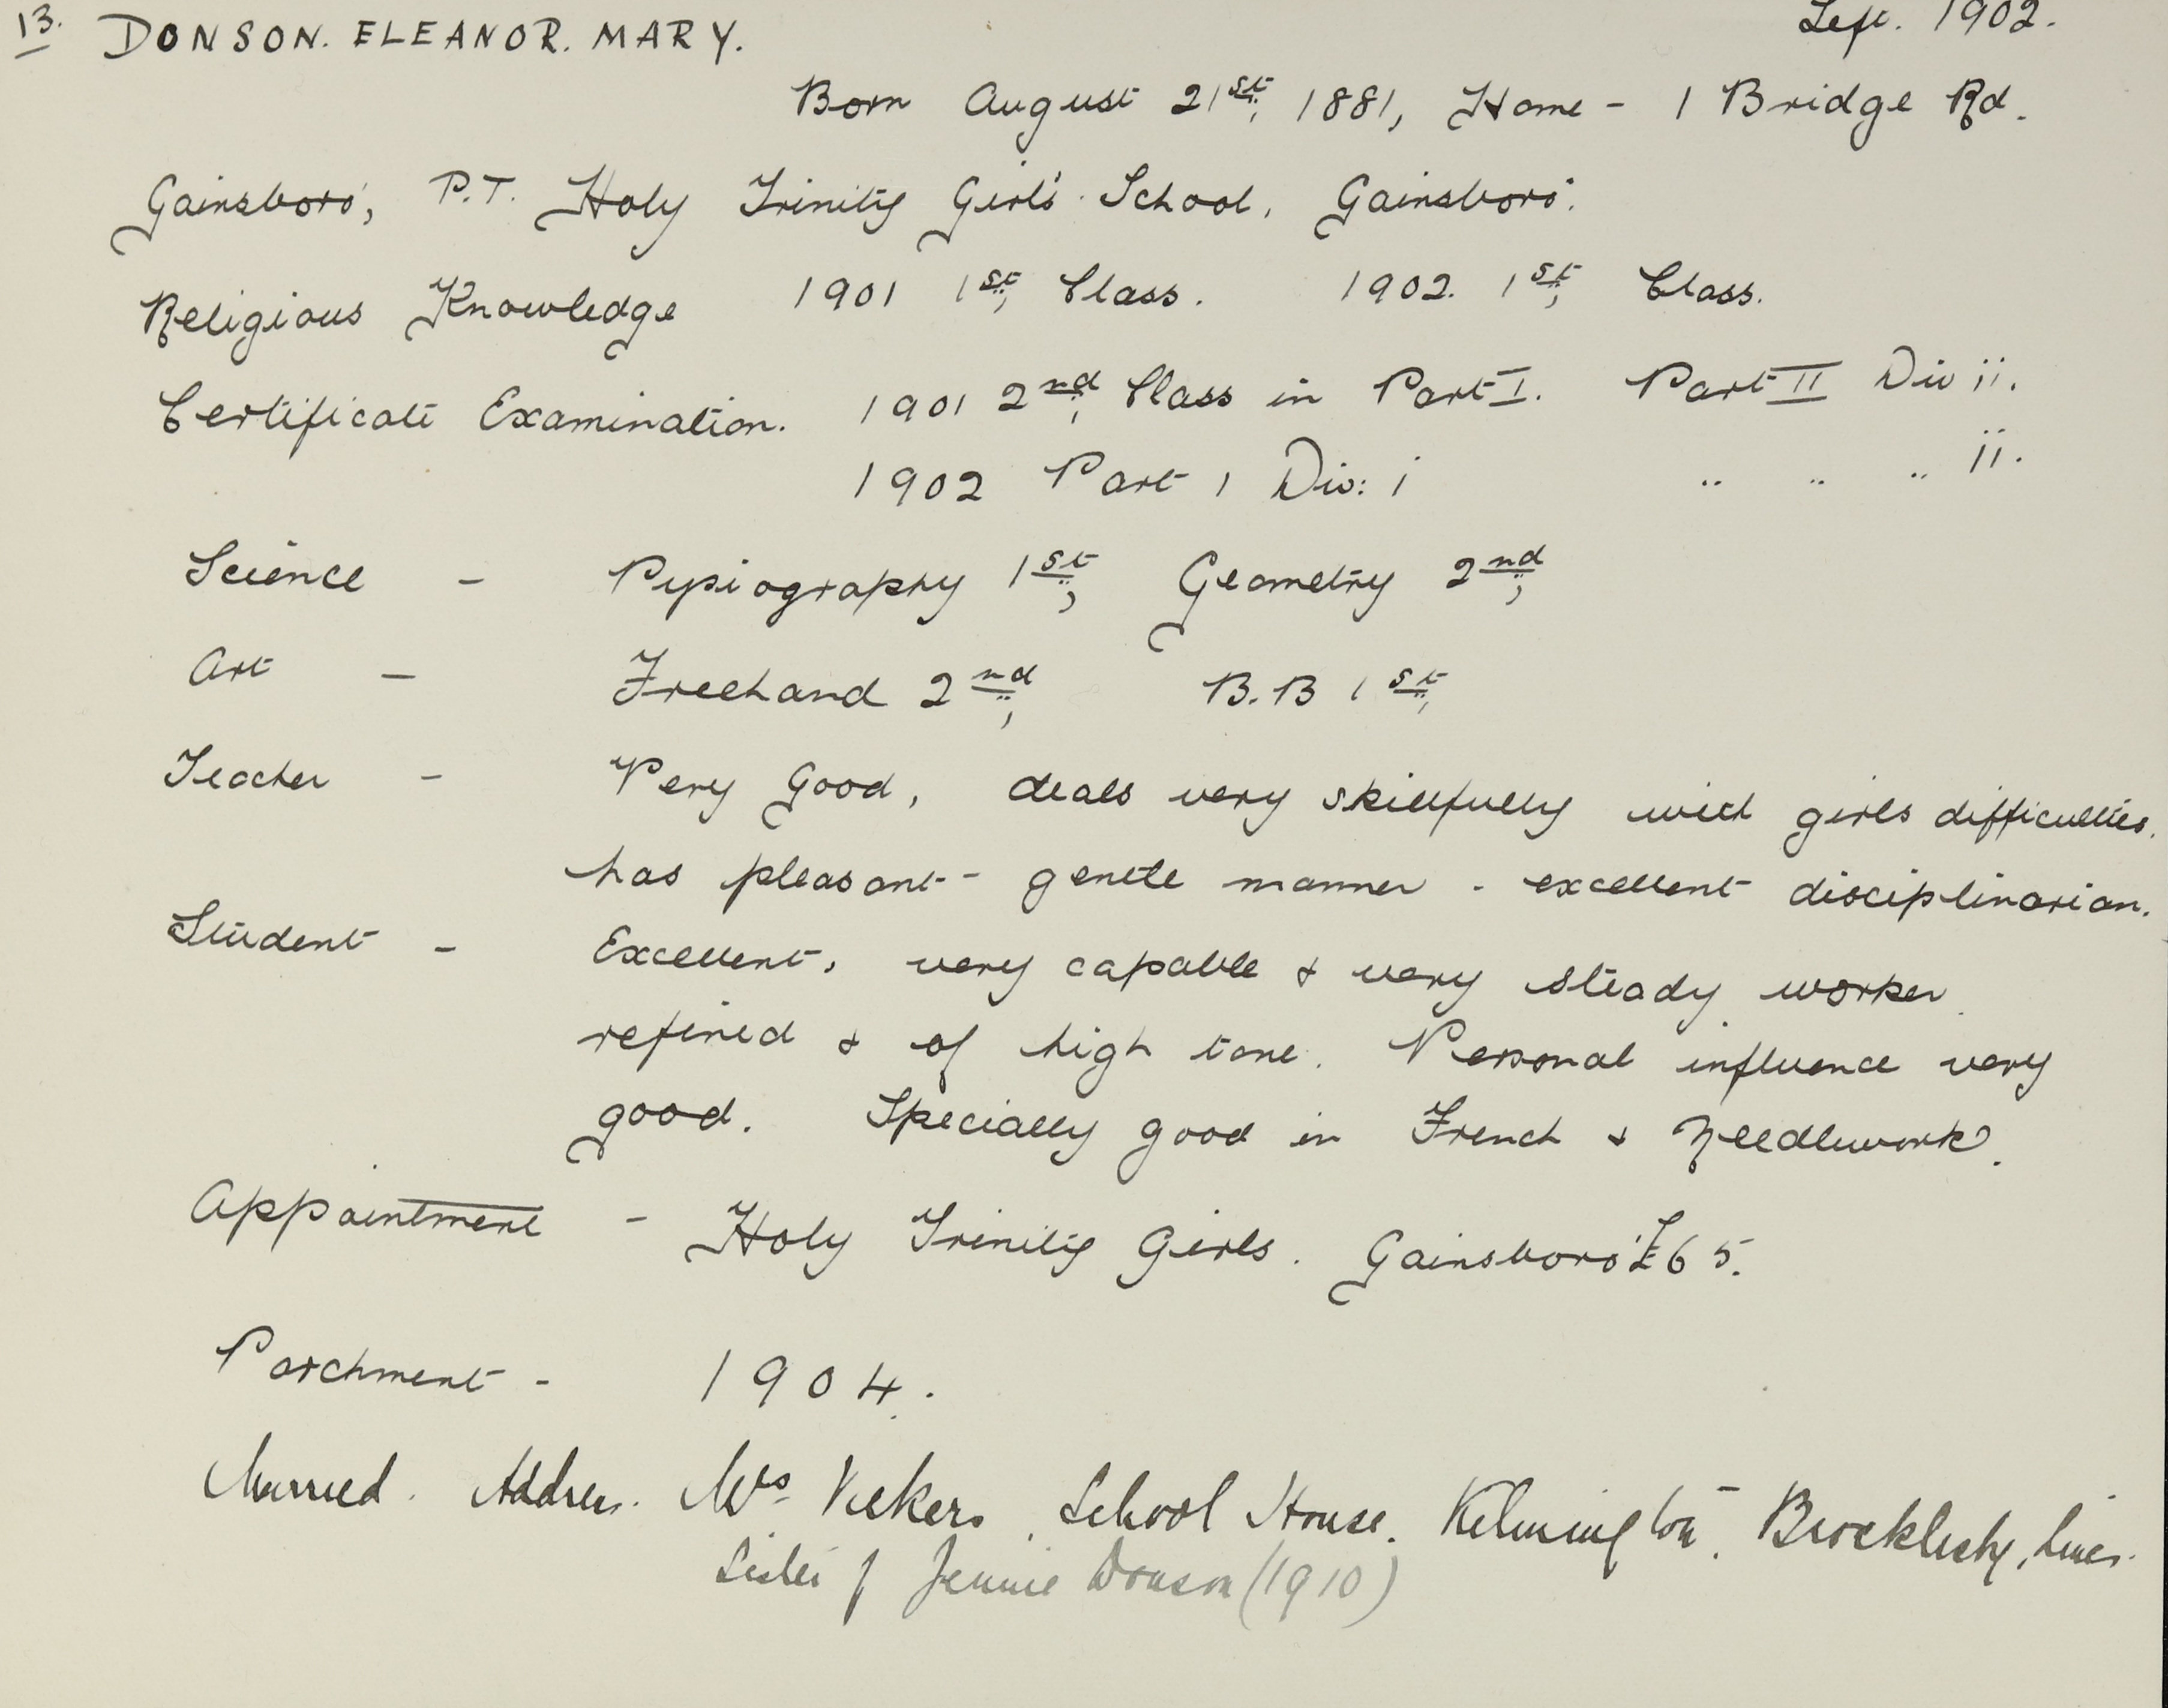 13. DONSON. ELEANOR. MARY. Left. 1902.
Born August 21st, 1881, Home - 1 Bridge Rd.
Gainsboro', P.T. Holy Trinity Girl's School, Gainsboro'.
Religious Knowledge 1901 1st, Class. 1902. 1st, Class.
Certificate Examination. 1901 2nd, Class in Part I. Part II Div ii.
1902 Part 1 Div: i " " " ii.
Science - Pysiography 1st, Geometry 2nd,
Art - Freehand 2nd, B.B 1st,
Teacher - Very Good, deals very skillfully with girls difficulties.
has pleasant - gentle manner - excellent disciplinarian.
Student - Excellent, very capable & very steady worker.
refined & of high tone. Personal influence very
good. Specially good in French & Needlework.
Appointment - Holy Trinity Girls. Gainsboro' £65.
Parchment - 1904.
Married. Address. Mrs Vickers, School House. Kelmington. Brocklesby, Lincs.
Sister of Jennie Donson (1910)